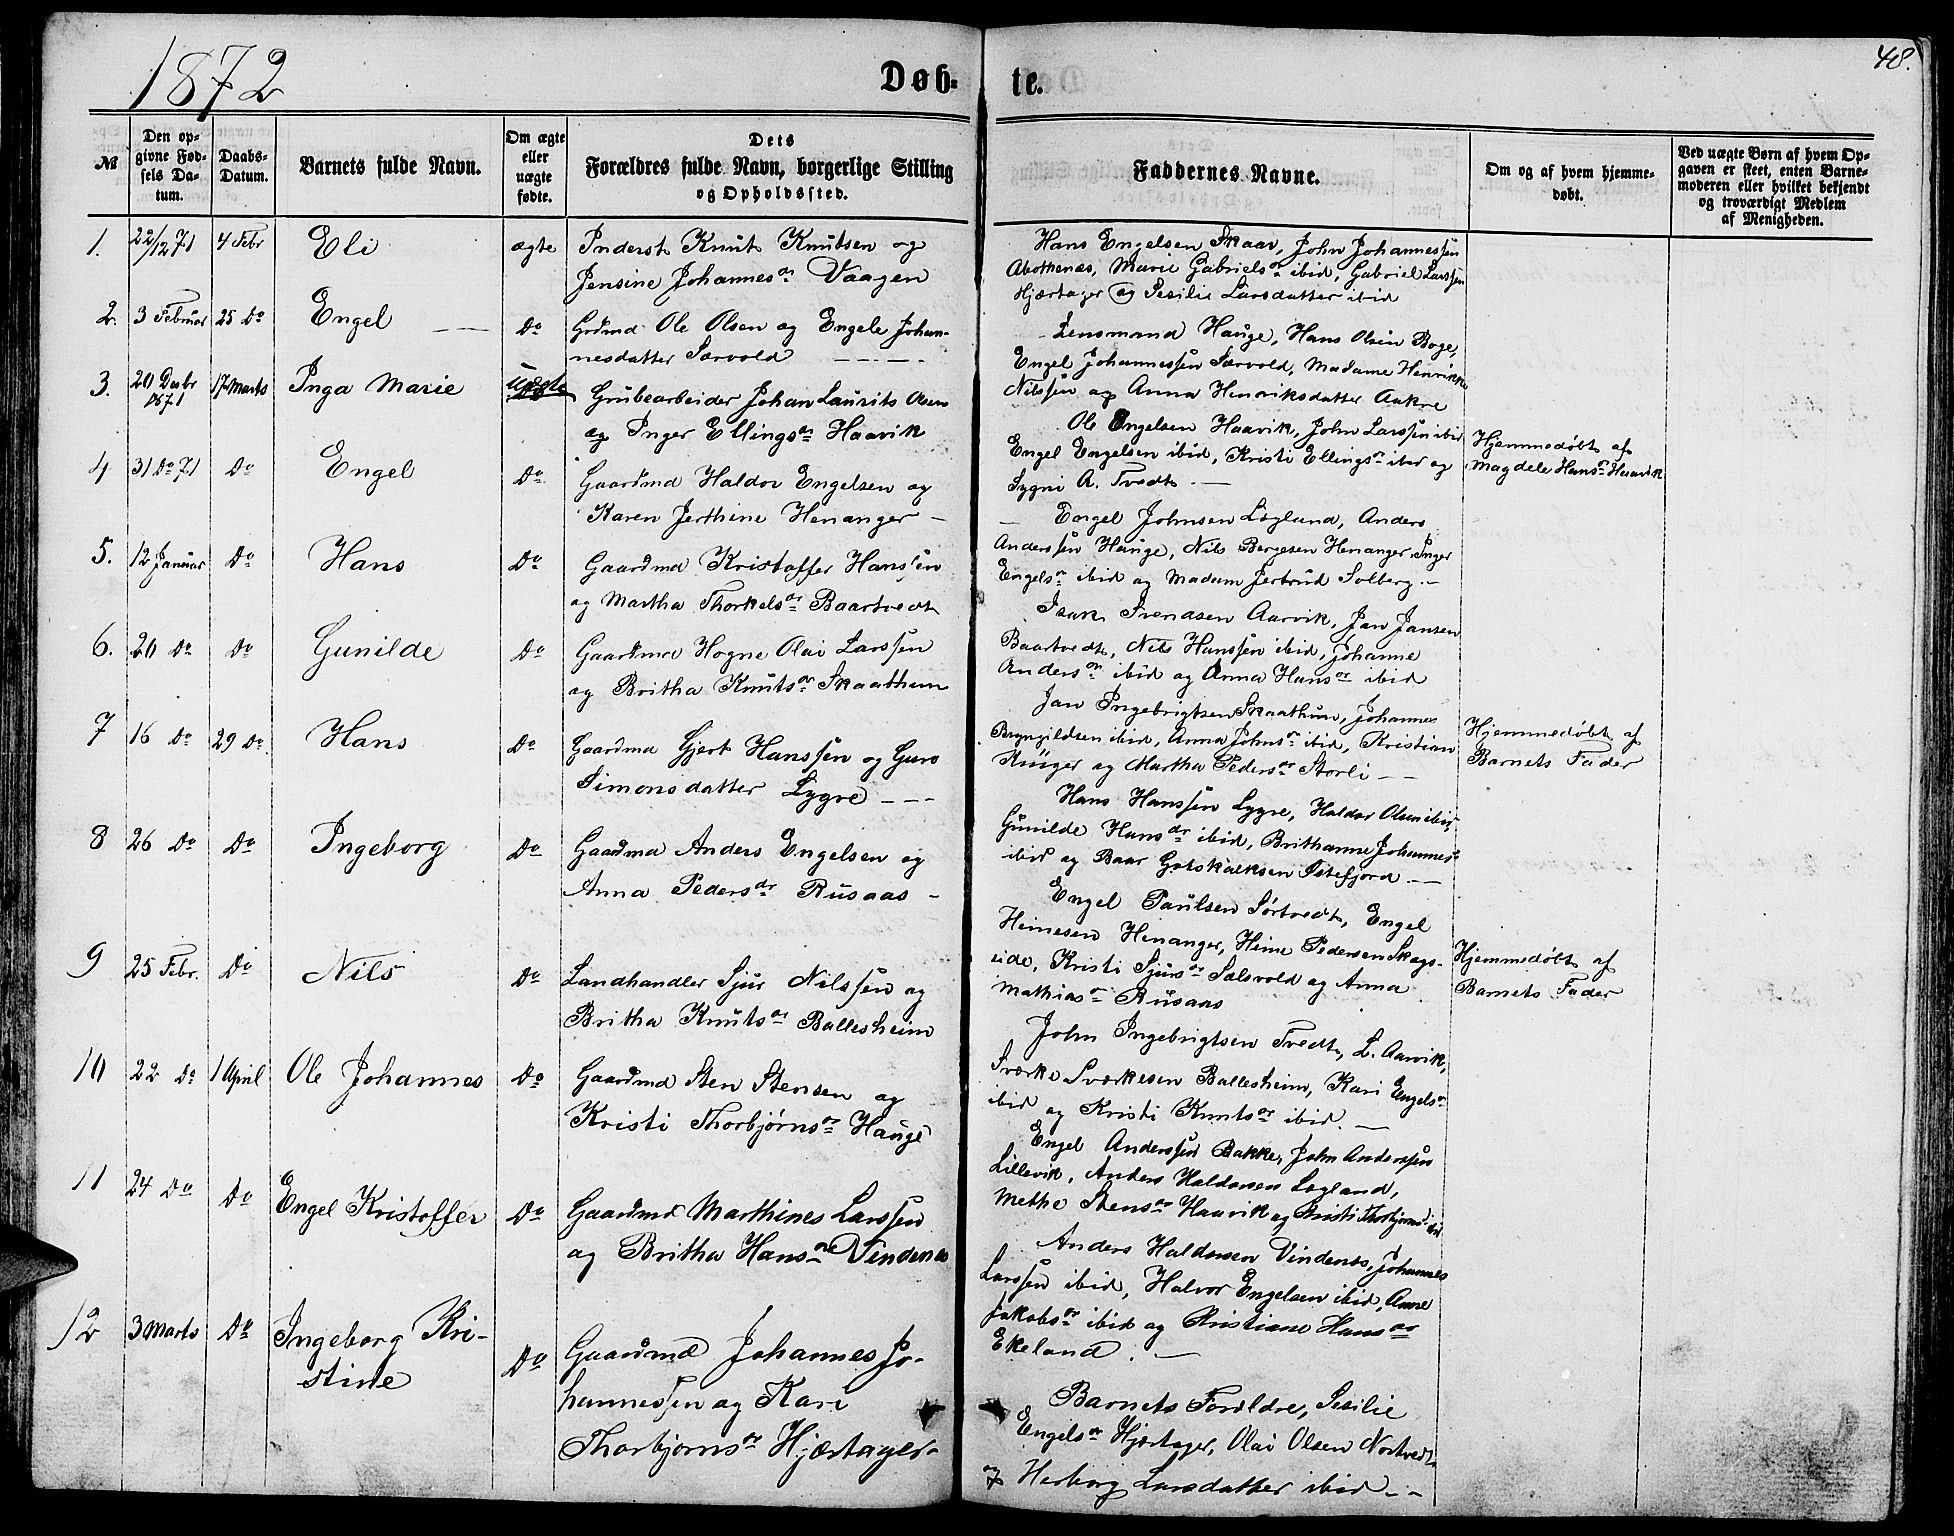 1872
Døb-
te.
48.
№
Den op-
givne Fød-
sels Da-
tum.
Daabs-
Datum.
Barnets fulde Navn.
Om ægte
eller
uægte
fødte.
Dets
Forældres fulde Navn, borgerlige Stilling
og Opholdssted.
Faddernes Navne.
Om og af hvem hjemme-
døbt.
Ved uægte Børn af hvem Op-
gaven er skeet, enten Barne-
moderen eller hvilket bekjendt
og troværdigt Medlem
af Menigheden.
1. 22/12 71 4 Febr Eli ægte Inderst Knut Knutsen og
Jensine Johannesdr Vaagen
Hans Engelsen Skaar, John Johannessen
Abothenæs, Marie Gabrielsdr ibid, Gabriel Larssen
Hjærtager og Sesilie Larsdatter ibid
2. 3 Februar 25 Do Engel Do Grdmd Ole Olsen og Engele Johan-
nesdatter Særvold
Lensmand Hauge, Hans Olsen Boge,
Engel Johannessen Særvold, Madame Henrikke
Nilssen og Anna Henriksdatter Aakre
3. 20 Desbr 1871 17 Marts Inga Marie uægte Grubearbeider Johan Laurits Olsen
og Inger Ellingsdr Haavik
Ole Engelsen Haavik, John Larssen ibid
Engel Engelsen ibid, Kristi Ellingsdr ibid og
Sygni A. Tvedt
Hjemmedøbt af
Magdele Hansdr Haavik
4 31 Do 71 Do Engel Do Gaardmd Haldor Engelsen og
Karen Jerthine Henanger
Engel Johnsen Løgland, Anders
Anderssen Hauge, Nils Børgesen Henanger, Inger
Engelsdr ibid og Madam Jertrud Solberg
5. 12 Januar Do Hans Do Gaardmd Kristoffer Hanssen
og Martha Thorkelsdr Baartvedt
Isak Svendsen Aarvik, Jan Jansen
Baartvedt, Nils Hanssen ibid, Johanne
Andersdr ibid og Anna Hansdr ibid
6. 20 Do Do Gunilde Do Gaardmd Hogne Olai Larssen
og Britha Knutsdr Skaathun
Jan Ingebrigtsen Skaathun, Johannes
Brynjildsen ibid, Anna Johnsdr ibid, Kristian
Krüger og Martha Pedersdr Storli
7 16 Do 29 Do Hans Do Gaardmd Gjert Hanssen og Guro
Simonsdatter Lygre
Hans Hanssen Lygre, Haldor Olsen ibid,
Gunilde Hansdr ibid, Brithanna Johannesdr
ibid og Baar Gotskalksen Østefjord
Hjemmedøbt af
Barnets Fader
8 26 Do Do Ingeborg Do Gaardmd Anders Engelsen og
Anna Pedersdr Rusaas
Engel Paulsen Sørtvedt, Engel
Heinesen Henanger, Heine Pedersen Skogs-
eide, Kristi Sjursdr Sælsvold og Anna
Mathiasdr Rusaas
9 25 Febr. Do Nils Do Landhandler Sjur Nilssen og
Britha Knutsdr Ballesheim
John Ingebrigtsen Tvedt, L. Aarvik,
Sværke Sværkesen Ballesheim, Kari Engelsdr
ibid og Kristi Knutsdr ibid.
Hjemmedøbt af
Barnets Fader
10 22 Do 1 April Ole Johannes Do Gaardmd Sten Stensen og
Kristi Thorbjørnsdr Hauge
Engel Anderssen Bakke, John Anderssen
Lillevik, Anders Haldorsen Løgland,
Methe Stensdr Haavik og Kristi Thorbjørnsdr ibid
11 24 Do Do Engel Kristoffer Do Gaardmd Marthines Larssen
og Britha Hansdr Vindenes
Anders Haldorsen Vindenes, Johannes
Larssen ibid, Halvor Engelsen ibid, Anne
Jakobsdr ibid og Kristiane Hansdr
Ekeland.
12 3 Marts Do Ingeborg Kri-
stine Do Gaardmd Johannes Jo-
hannessen og Kari
Thorbjørnsdr Hjærtager
Barnets Forældre, Sesilie
Engelsdr Hjærtager, Olai Olsen Nortvedt
og Herborg Larsdatter ibid